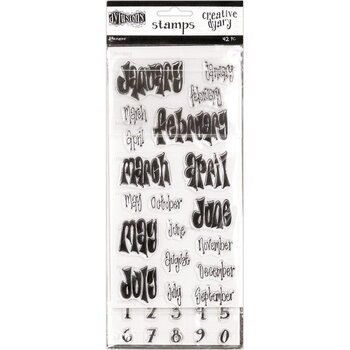 DYLUSIONS stamps creative dyary
Ranger 42 PC
January
january
february
march
february
april
march april
may october
june
may june
november
august
december
july
july september
1 2 3 4 5
6 7 8 9 0